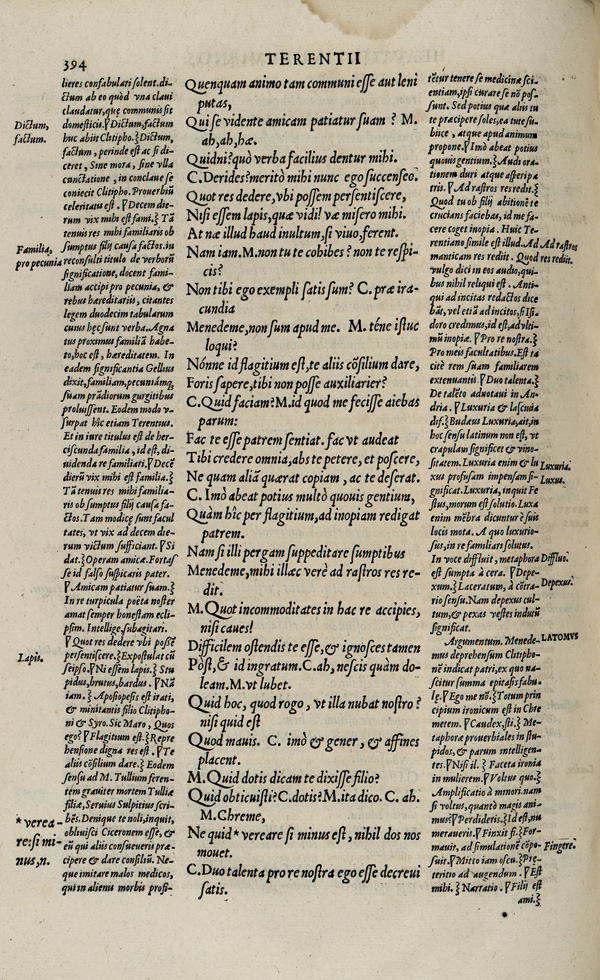 394
TERENTII
lieres confabulari solent. di-
ctum ab eo quòd vna claui
claudatur, quę communis sit
domesticis. Dictum, factum
huc abiit Clitipho. Dictum,
factum, perinde est ac si di-
ceret, Sine mora, sine vlla
cunctatione, in conclaue se
coniecit Clitipho. Prouerbiũ
celeritatis est. Decem die-
rum vix mihi est fami. Tã
tenuis res mihi familiaris ob
sumptus filij causa factos. iu
reconsulti titulo de verborũ
significatione, docent fami-
liam accipi pro pecunia, &
rebus hæreditariis, citantes
legem duodecim tabularum
cuius hęc sunt verba. Agna
tus proximus familiã habe-
to, hoc est, hæreditatem. In
eadem significantia Gellius
dixit, familiam, pecuniamq́;
suam prædiorum gurgitibus
proluissent. Eodem modo v-
surpat hîc etiam Terentius.
Et in iure titulus est de her-
ciscunda familia, id est, di-
uidenda re familiari. Decẽ
dierũ vix mihi est familia.
Tã tenuis res mihi familia-
ris ob sumptus filij causa fa-
ctos. Tam modicę sunt facul
tates, vt vix ad decem die-
rum victum sufficiant. Si
dat. Operam amicæ. Fortas
se id falso suspicaris pater.
Amicam patiatur suam.
In re turpicula poëta noster
amat semper honestam ecli-
psim. Intellige, subagitari.
Quot res dedere vbi possẽ
persentiscere. Expostulat cũ
seipso. Ni essem lapis. Stu
pidus, brutus, bardus. Nã
iam. Aposiopesis est irati,
& minitantis filio Clitipho-
ni & Syro. Sic Maro, Quos
ego? Flagitium est. Repre
hensione digna res est. Te
aliis cõsilium dare. Eodem
sensu ad M. Tullium feren-
tem grauiter mortem Tulliæ
filiæ, Seruius Sulpitius scri-
bẽs. Denique te noli, inquit,
obliuisci Ciceronem esse, &
eũ qui aliis consueueris præ-
cipere & dare consiliũ. Ne-
que imitare malos medicos,
qui in alienis morbis profi-
Dictum,
factum.
Familia,
pro pecunia
Lapis.
*verea-
re: si mi-
nus, n.
Quenquam animo tam communi esse aut leni
putas,
Qui se vidente amicam patiatur suam? M.
ah, ah, hæ.
Quidni? quò verba facilius dentur mihi.
C. Derides? meritò mihi nunc ego succenseo.
Quot res dedere, vbi possem persentiscere,
Nisi essem lapis, quæ vidi! væ misero mihi.
At næ illud haud inultum, si viuo, ferent.
Nam iam. M. non tu te cohibes? non te respi-
cis?
Non tibi ego exempli satis sum? C. præ ira-
cundia
Menedeme, non sum apud me. M. téne istuc
loqui?
Nónne id flagitium est, te aliis cõsilium dare,
Foris sapere, tibi non posse auxiliarier?
C. Quid faciam? M. id quod me fecisse aiebas
parum:
Fac te esse patrem sentiat. fac vt audeat
Tibi credere omnia, abs te petere, et poscere,
Ne quam aliã quærat copiam, ac te deserat.
C. Imò abeat potius multò quouis gentium,
Quàm hîc per flagitium, ad inopiam redigat
patrem.
Nam si illi pergam suppeditare sumptibus
Menedeme, mihi illæc verè ad rastros res re-
dit.
M. Quot incommoditates in hac re accipies,
nisi caues!
Difficilem ostendis te esse, & ignosces tamen
Pòst, & id ingratum. C. ah, nescis quàm do-
leam. M. vt lubet.
Quid hoc, quod rogo, vt illa nubat nostro?
nisi quid est
Quod mauis. C. imò & gener, & affines
placent.
M. Quid dotis dicam te dixisse filio?
Quid obticuisti? C. dotis? M. ita dico. C. ah.
M. Chreme,
Ne quid *vereare si minus est, nihil dos nos
mouet.
C. Duo talenta pro re nostra ego esse decreui
satis.
tẽtur tenere se medicinæ sci-
entiam, ipsi curare se nõ pos-
sunt. Sed potius quæ aliis tu
te præcipere soles, ea tute su-
biice, atque apud animum
propone. Imò abeat potius
quouis gentium. Audi ora-
tionem duri atque asperi pa
tris. Ad rastros res redit.
Quod tu ob filij abitionẽ te
crucians faciebas, id me fa-
cere coget inopia. Huic Te-
rentiano simile est illud. Ad
manticam res rediit. Quod
vulgo dici in eos audio, qui-
bus nihil reliqui est. Anti-
qui ad incitas redactos dice
bãt, vel etiã ad incitos, si Isi-
doro credimus, id est, ad vlti-
mũ inopiæ. Pro re nostra.
Pro meis facultatibus. Est ta
citè rem suam familiarem
extenuantis. Duo talenta.
De talẽto adnotaui in An-
dria. Luxuria & lasciuia
dif. Budæus Luxuria, ait, in
hoc sensu latinum non est, vt
crapulam significet & vino-
sitatem. Luxuria enim & lu
xus profusam impensam si-
gnificat. Luxuria, inquit Fe
stus, morum est solutio. Luxa
enim mẽbra dicuntur è suis
locis mota. A quo luxurio-
sus, in re familiari solutus.
In voce diffluit, metaphora
est sumpta à cera. Depe-
xum. Laceratum, à cõtra-
rio sensu. Nam depexus cul-
tum, & pexas vestes indutũ
significat.
Argumentum. Menede-
mus deprehensum Clitipho-
nẽ indicat patri, ex quo na-
scitur summa epitasis fabu-
lę. Ego me nõ. Totum prin
cipium ironicum est in Chre
metem. Caudex, sti. Me-
taphoræ prouerbiales in stu-
pidos, & parum intelligen-
tes. Nisi il. Faceta ironia
in mulierem. Voltus quo.
Amplificatio à minori. nam
si voltus, quantò magis ani-
mus? Perdideris. Id est, nu
meraueris. Finxit fi. For-
mauit, ad simulationẽ cõpo-
suit. Mitto iam oscu. Pręteritio
ad augendum. Est
mihi. Narratio. Filij est
ami.
Ad rastros
res rediit.
Luxuria.
Luxus.
Diffluo.
Depexus.
LATOMVS
Fingere.